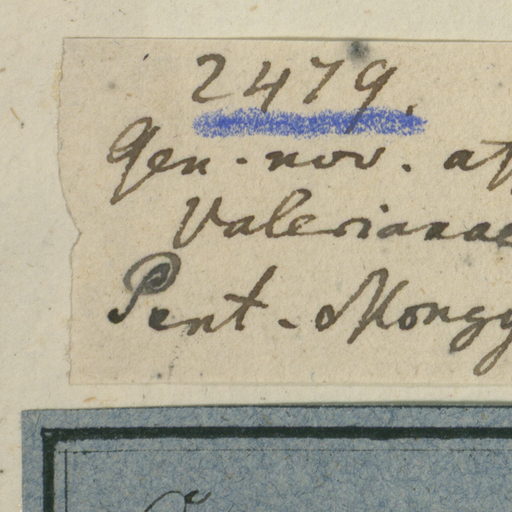 2479.
Gen. nov. af
Valerianae
Pent. Monogy